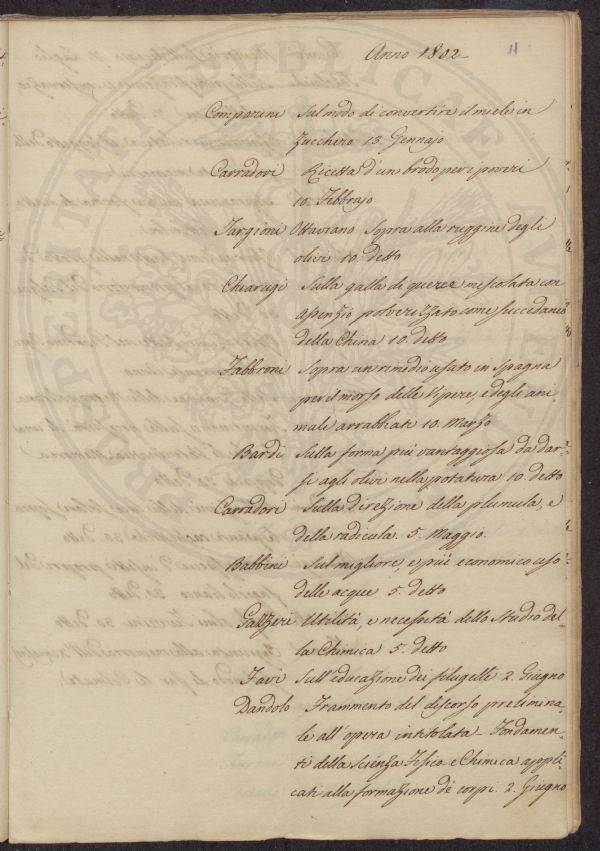 Anno 1802
11
Comparini Sul modo di convertire il miele in
Zucchero 13. Gennajo
Carradori Ricetta d'un brodo per i poveri
10. Febbrajo
Targioni Ottaviano Sopra alla ruggine degli
olivi 10. detto
Chiarugi Sulla galla di querce mescolata con
assenzio polverizzato come succedaneo
della China 10. detto
Fabbroni Sopra un rimedio usato in Spagna
per il morso delle Vipere, e degli ani-
mali arrabbiati 10. Marzo
Bardi Sulla forma più vantaggiosa da dar-
si agli olivi nella potatura 10. detto
Carradori Sulla direzione della plumula, e
della radicula. 5. Maggio.
Babbini Sul migliore, e più economico uso
delle acque 5. detto
Palzzeri Utilità, e necessità dello Studio del-
la Chimica 5. detto
Favi Sull'educazione dei filugelli 2. Giugno
Dandolo Frammento del discorso prelimina-
le all'opera intitolata Fondamen-
ti della scienza Fisico e Chimica appli-
cati alla formazione de' corpi. 2. Giugno
PUBLICHE
PROSPERITA